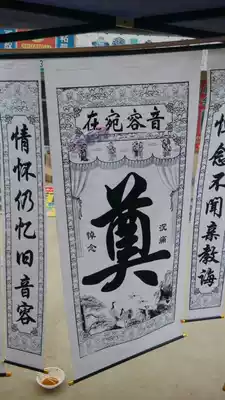 音容宛在
沉痛
奠
悼念
念不闻亲教诲
情怀仍忆旧音容